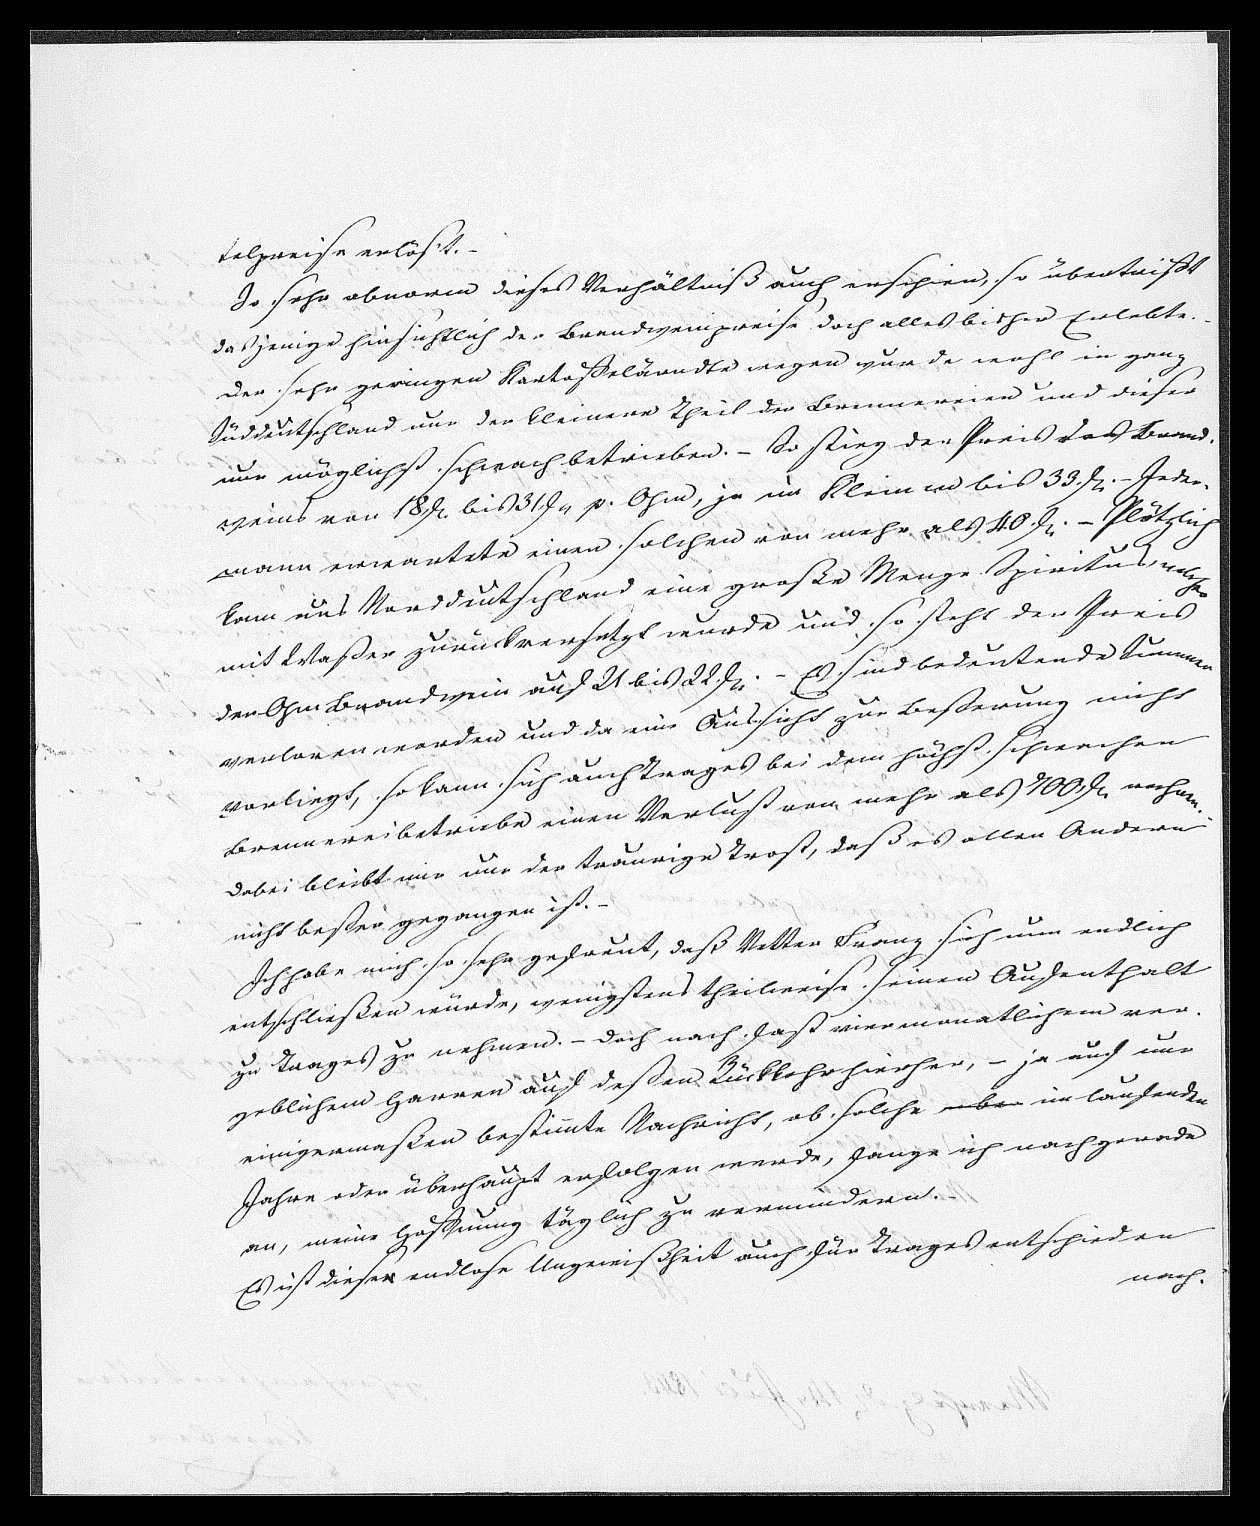 telpreise erlößt. -
So sehr abnorm dieses Verhältniß auch erschien, so übertrifft
dasjenige hinsichtlich der Brandweinpreise doch alles bisher Erlebte. -
Der sehr geringen Kartoffelärndte wegen wurde wohl in ganz
Süddeutschland nur der kleinere Theil der Brennereien und dieser
nur möglichst schwach betrieben. - So stieg der Preis des Brand-
weins von 18 fl. bis 31 fl. p. Ohm, ja im Kleinen bis 33 fl. - Jeder-
mann erwartete einen solchen von mehr als 40 fl. - Plötzlich
kam aus Norddeutschland eine große Menge Spiritus, welcher
mit Waßer zurückversetzt wurde und so steht der Preis
der Ohm Brandwein auf 21 bis 22 fl. - Es sind bedeutende Summen
verloren worden und da eine Aussicht zur Beßerung nicht
vorliegt, so kann sich auch Trages bei dem höchst schwachen
Brennereibetriebe einen Verlust von mehr als 700 fl. rechnen.
Dabei bleibt mir nur der traurige Trost, daß es allen Andern
nicht beßer gegangen ist. -
Ich habe mich so sehr gefreut, daß Vetter Franz sich nun endlich
entschließen würde, wenigstens theilweise seinen Aufenthalt
zu Trages zu nehmen. - Doch nach fast viermonatlichem ver-
geblichem Harren auf deßen Rückkehr hierher, - ja auf nur
einigermaßen bestimmte Nachricht, ob solche aber im laufenden
Jahre oder überhaupt erfolgen werde, fange ich nachgerade
an, meine Hoffnung täglich zu vermindern. -
Es ist diese endlose Ungewißheit auch für Trages entschieden
nach-